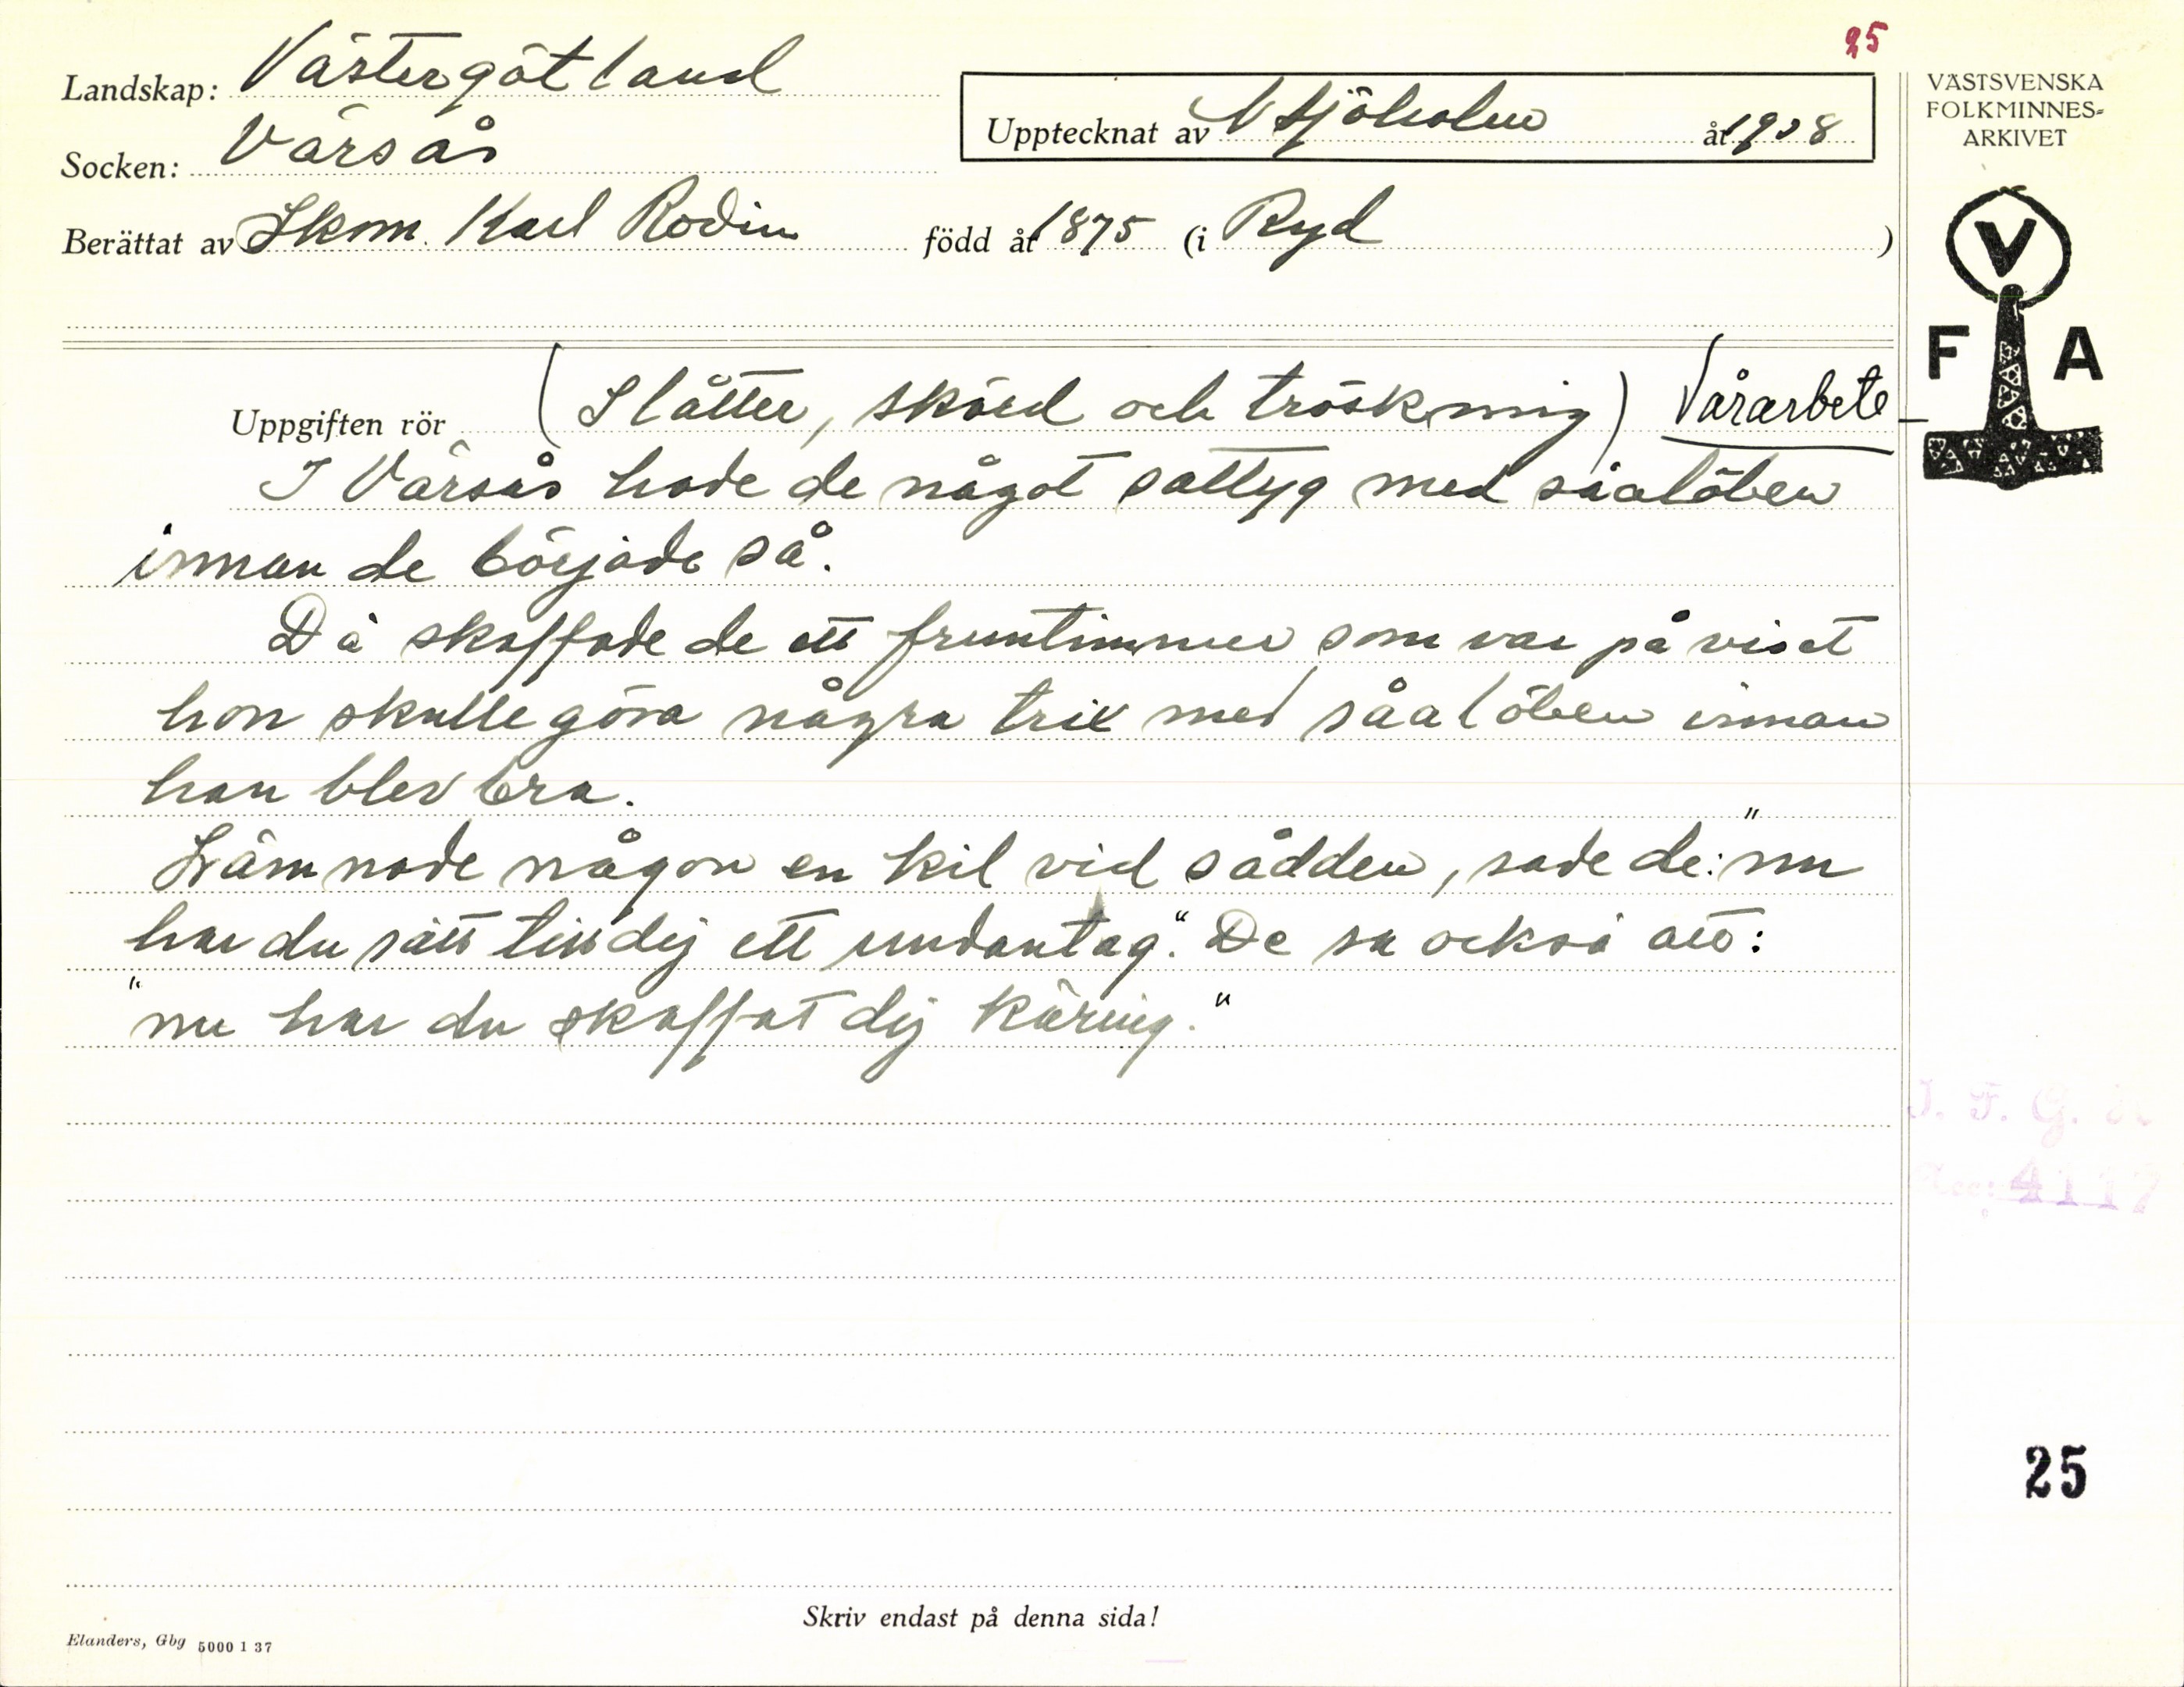 25
Landskap: Västergötland
Socken: Värsås
Upptecknat av N Sjöholm år 1938
Berättat av Skom. Karl Rodin född år 1875 (i Ryd)
VÄSTSVENSKA
FOLKMINNES=
ARKIVET
V
F A
Uppgiften rör (Slåtter, skörd och tröskning) Vårarbete
I Värsås hade de något sattyg med såalöben
innan de började så.
Då skaffade de ett fruntimmer som var på viset
hon skulle göra några trix med såalöben innan
han blev bra.
Lämnade någon en kil vid sådden, sade de: "nu
har du sått till dij ett undantag." De sa också att:
"nu har du skaffat dij käring."
J. F. G.
Acc: 4117
25
Skriv endast på denna sida!
Elanders, Gbg 5000 1 37